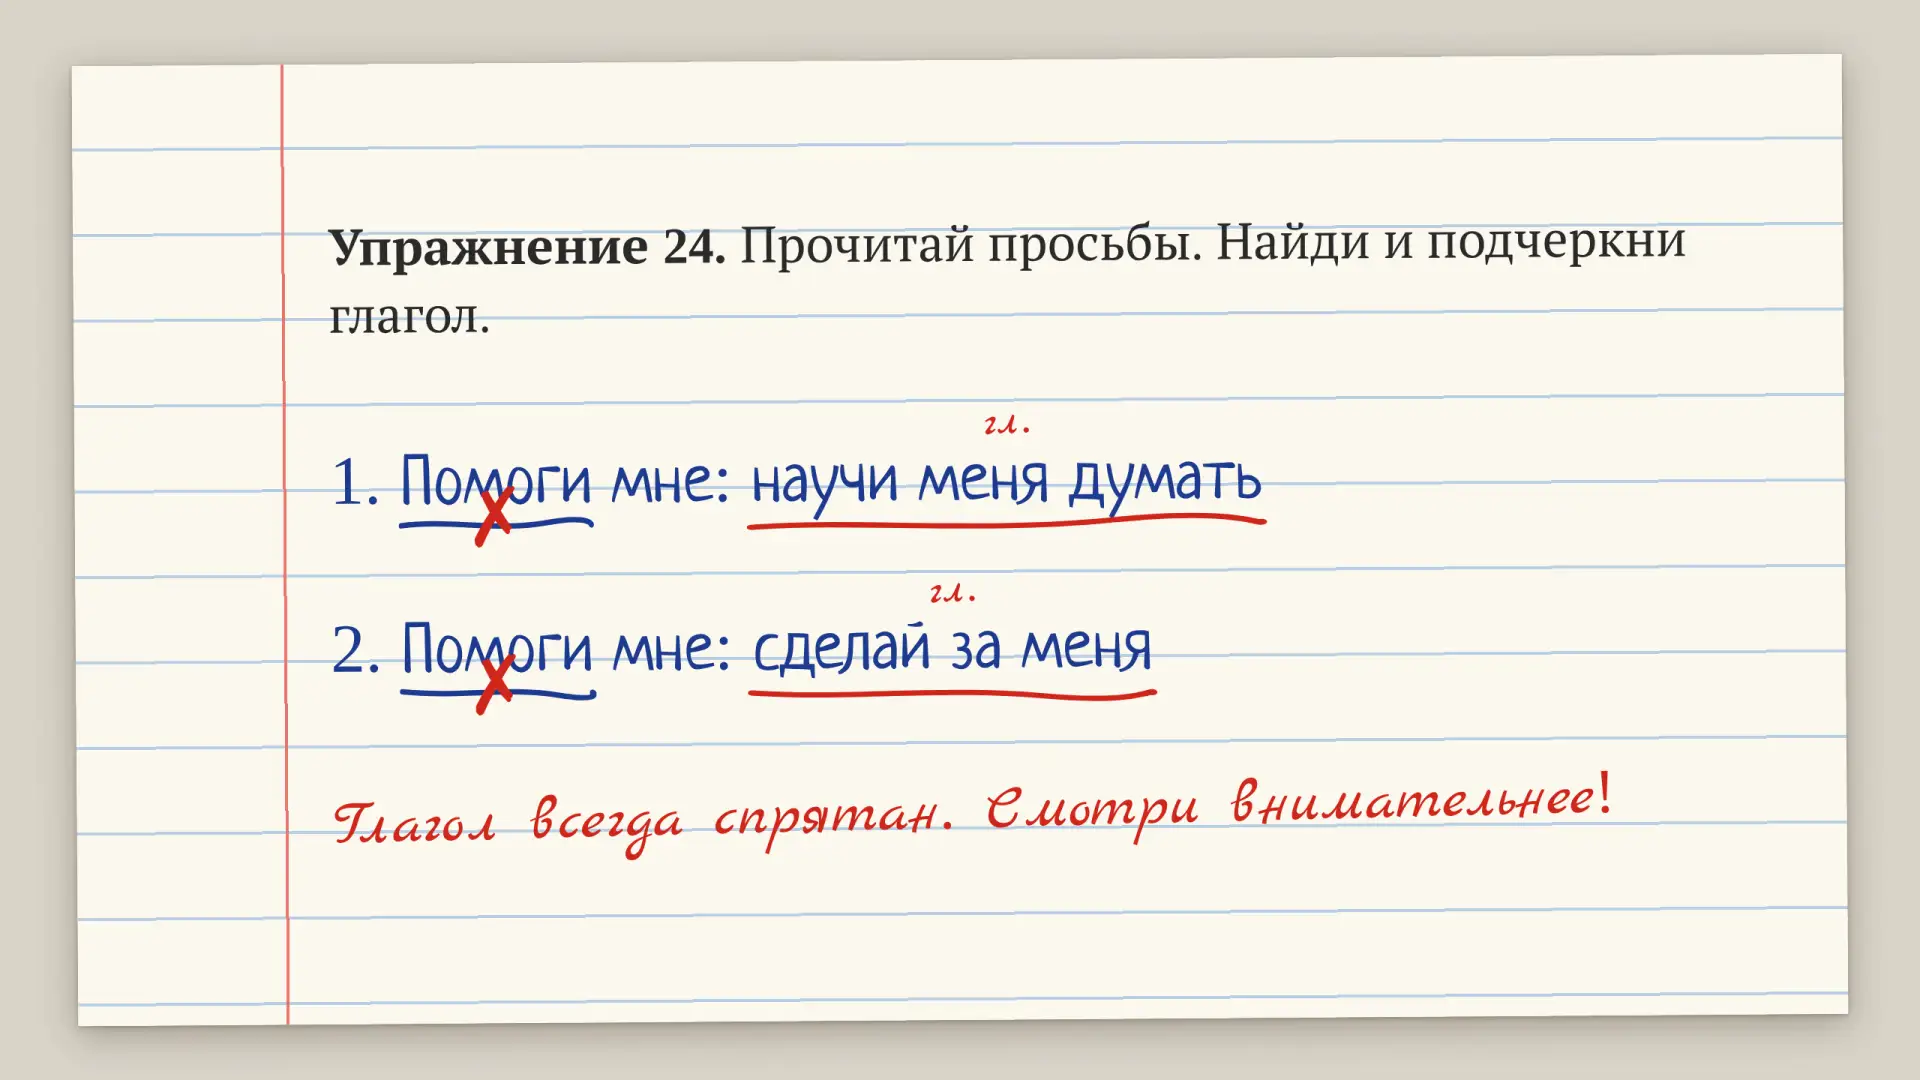 Упражнение 24. Прочитай просьбы. Найди и подчеркни
глагол.
гл.
1. Помоги мне: научи меня думать
гл.
2. Помоги мне: сделай за меня
Глагол всегда спрятан. Смотри внимательнее!